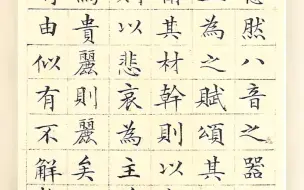 然八音之器
為之賦頌其
其材幹則以
以悲哀為主
貴麗則麗矣
由似有不解